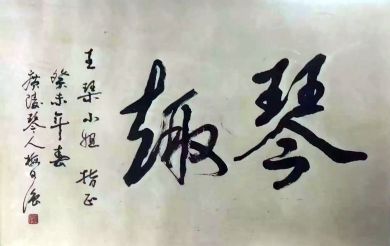 琴趣
王琴小姐指正
癸未年春
广陵琴人梅曰强